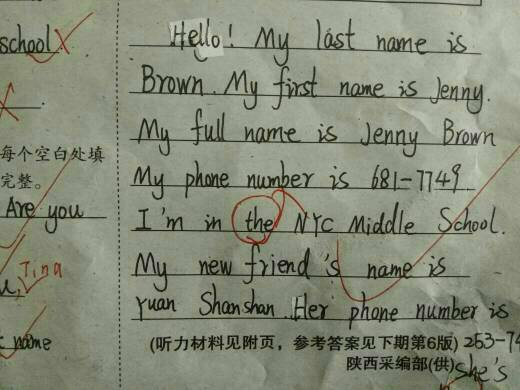 school
Hello! My last name is
Brown. My first name is Jenny.
每个空白处填
My full name is Jenny Brown
完整。
My phone number is 681-7749
Are you
I'm in the NYC Middle School.
Tina
My new friend's name is
Yuan Shanshan. Her phone number is
name
(听力材料见附页，参考答案见下期第6版) 253-74
陕西采编部(供) she's